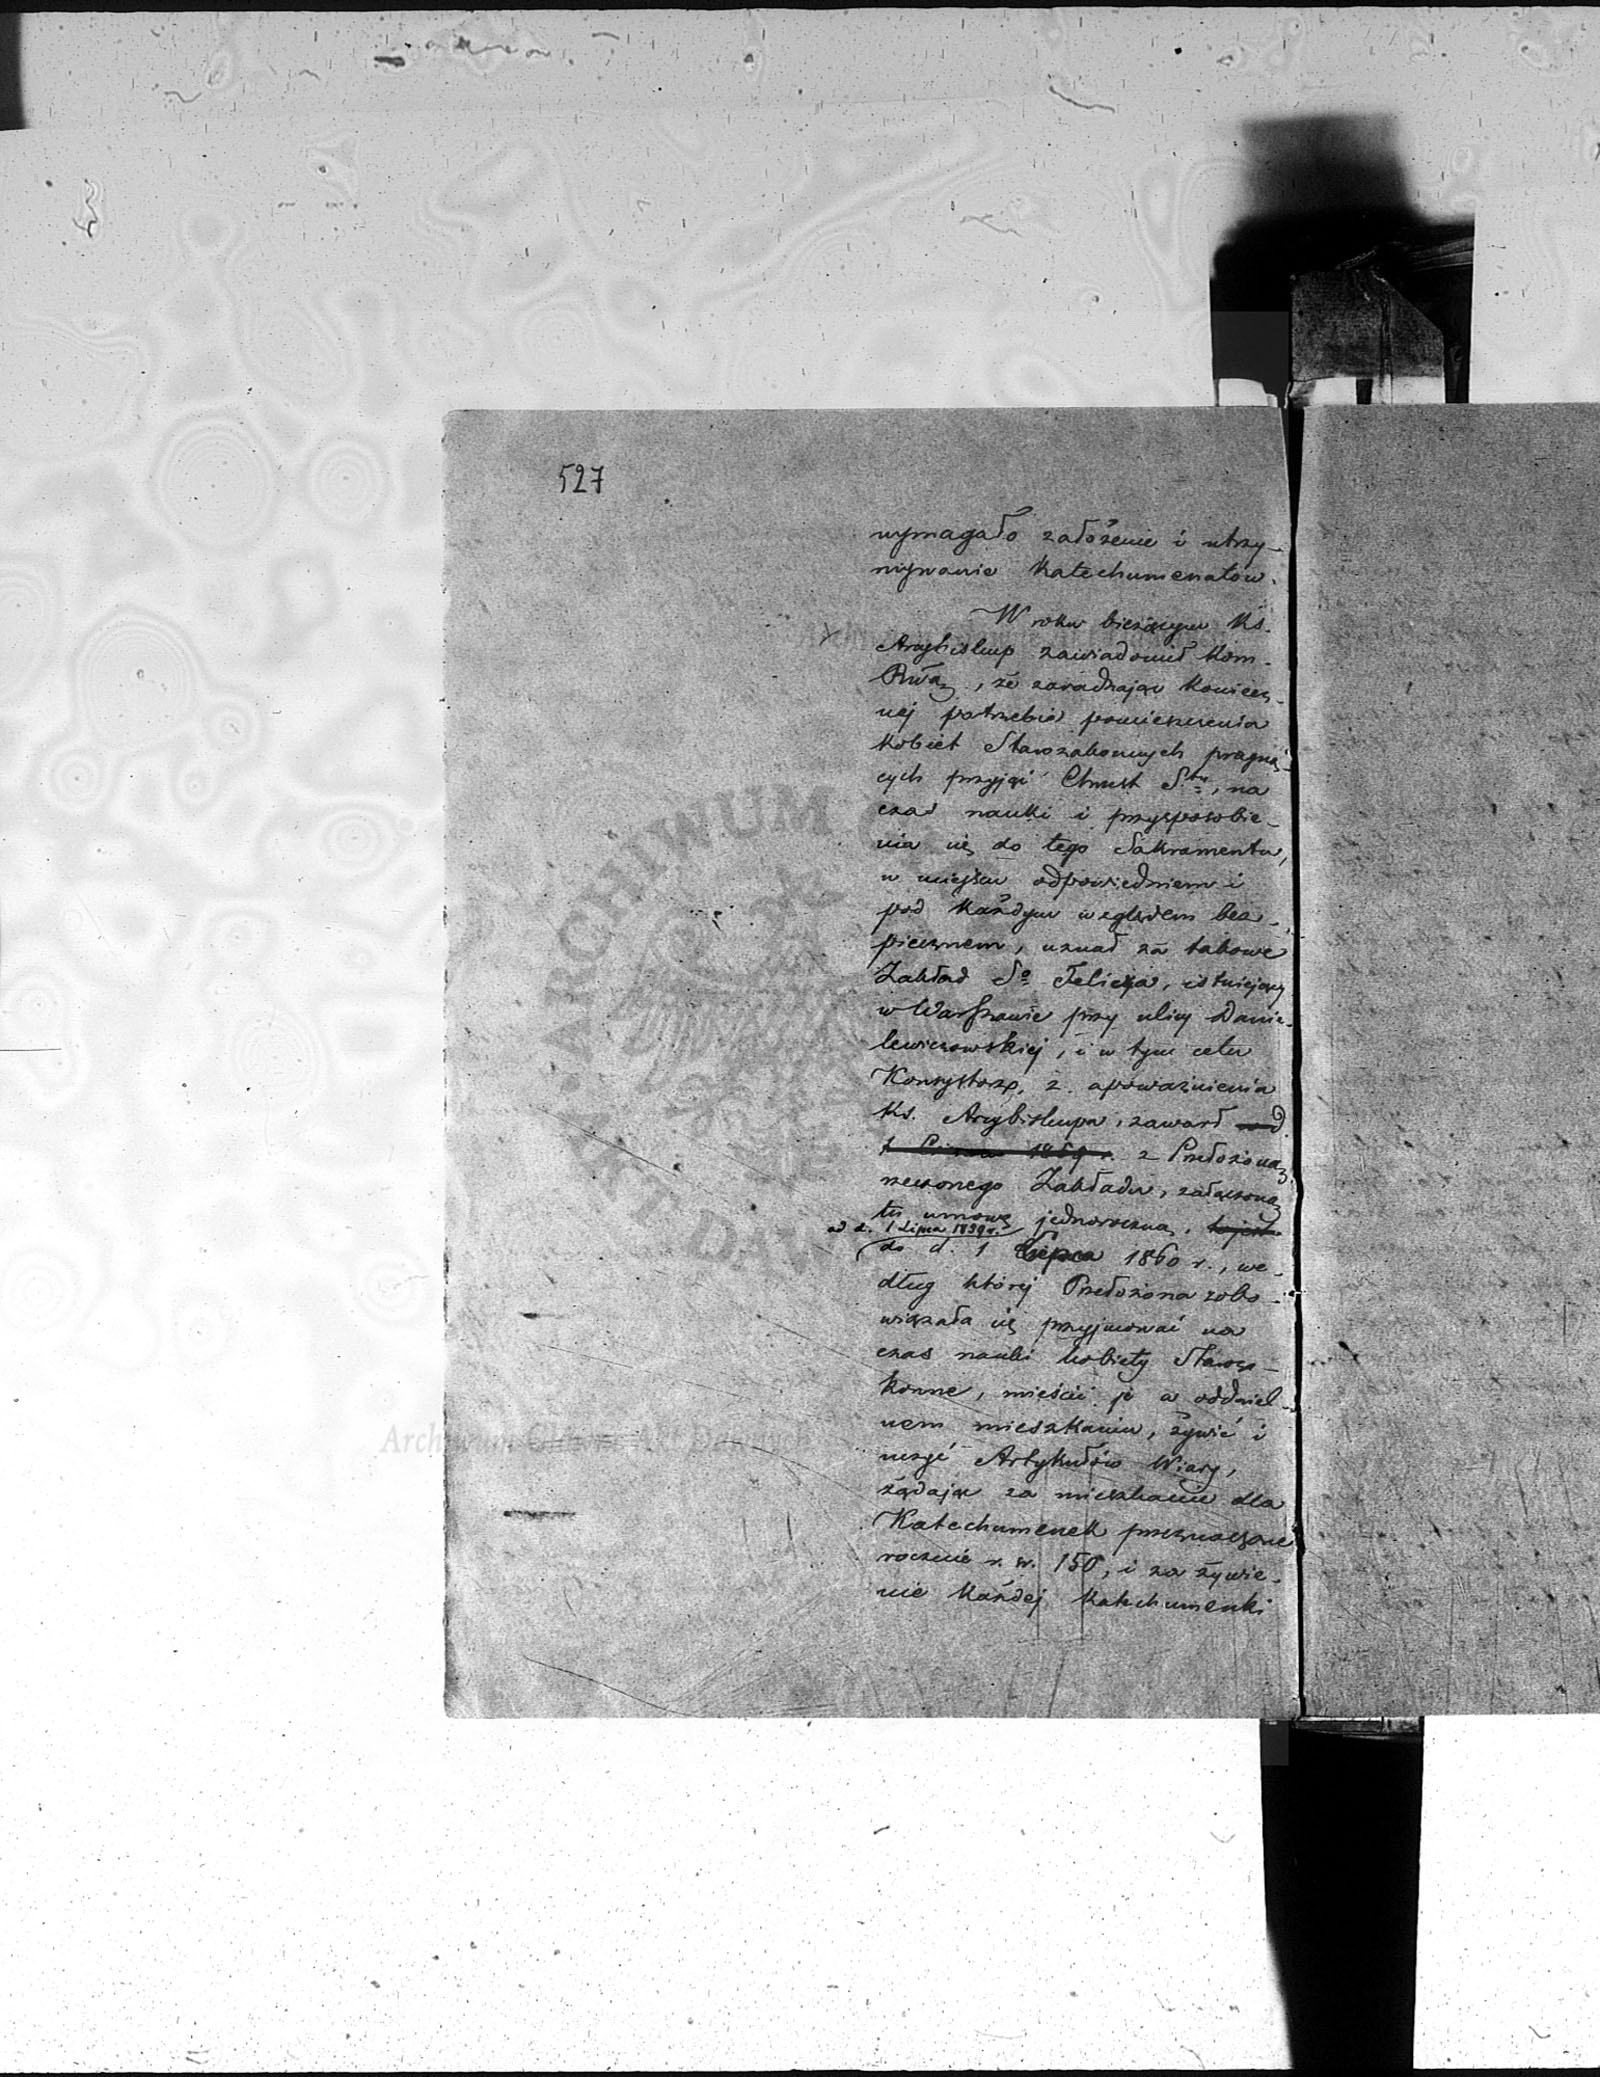 527
wymagało założenie i utrzy-
mywanie Katechumenatów.
W roku bieżącym Ks.
Arcybiskup zawiadomił Kom.
Rwą, że zaradzając koniecz-
nej potrzebie pomieszczenia
kobiet Starozakonnych pragną-
cych przyjąć Chrzest Sty, na
czas nauki i przysposobie-
nia się do tego Sakramentu,
w miejscu odpowiedniem i
pod każdym względem bez-
piecznem, uznał za takowe
Zakład So Felicyą, istniejący
w Warszawie przy ulicy Danie-
lewiczowskiej, i w tym celu
Konsystorz, z upoważnienia
Ks. Arcybiskupa, zawarł od
1 1859 r. z Przełożoną
rzeczonego Zakładu, załączoną
tu umowę jednoroczną, to jest
od d. 1 Lipca 1859 r.
do d. 1 Lipca 1860 r., we-
dług której Przełożona zobo-
wiązała się przyjmować na
czas nauki kobiety Staroza-
konne, mieścić je w oddziel-
nem mieszkaniu, żywić i
uczyć Artykułów Wiary,
żądając za mieszkanie dla
Katechumenek przeznaczone
rocznie r. sr. 150, i za żywie-
nie każdej Katechumenki
Archiwum Główne Akt Dawnych